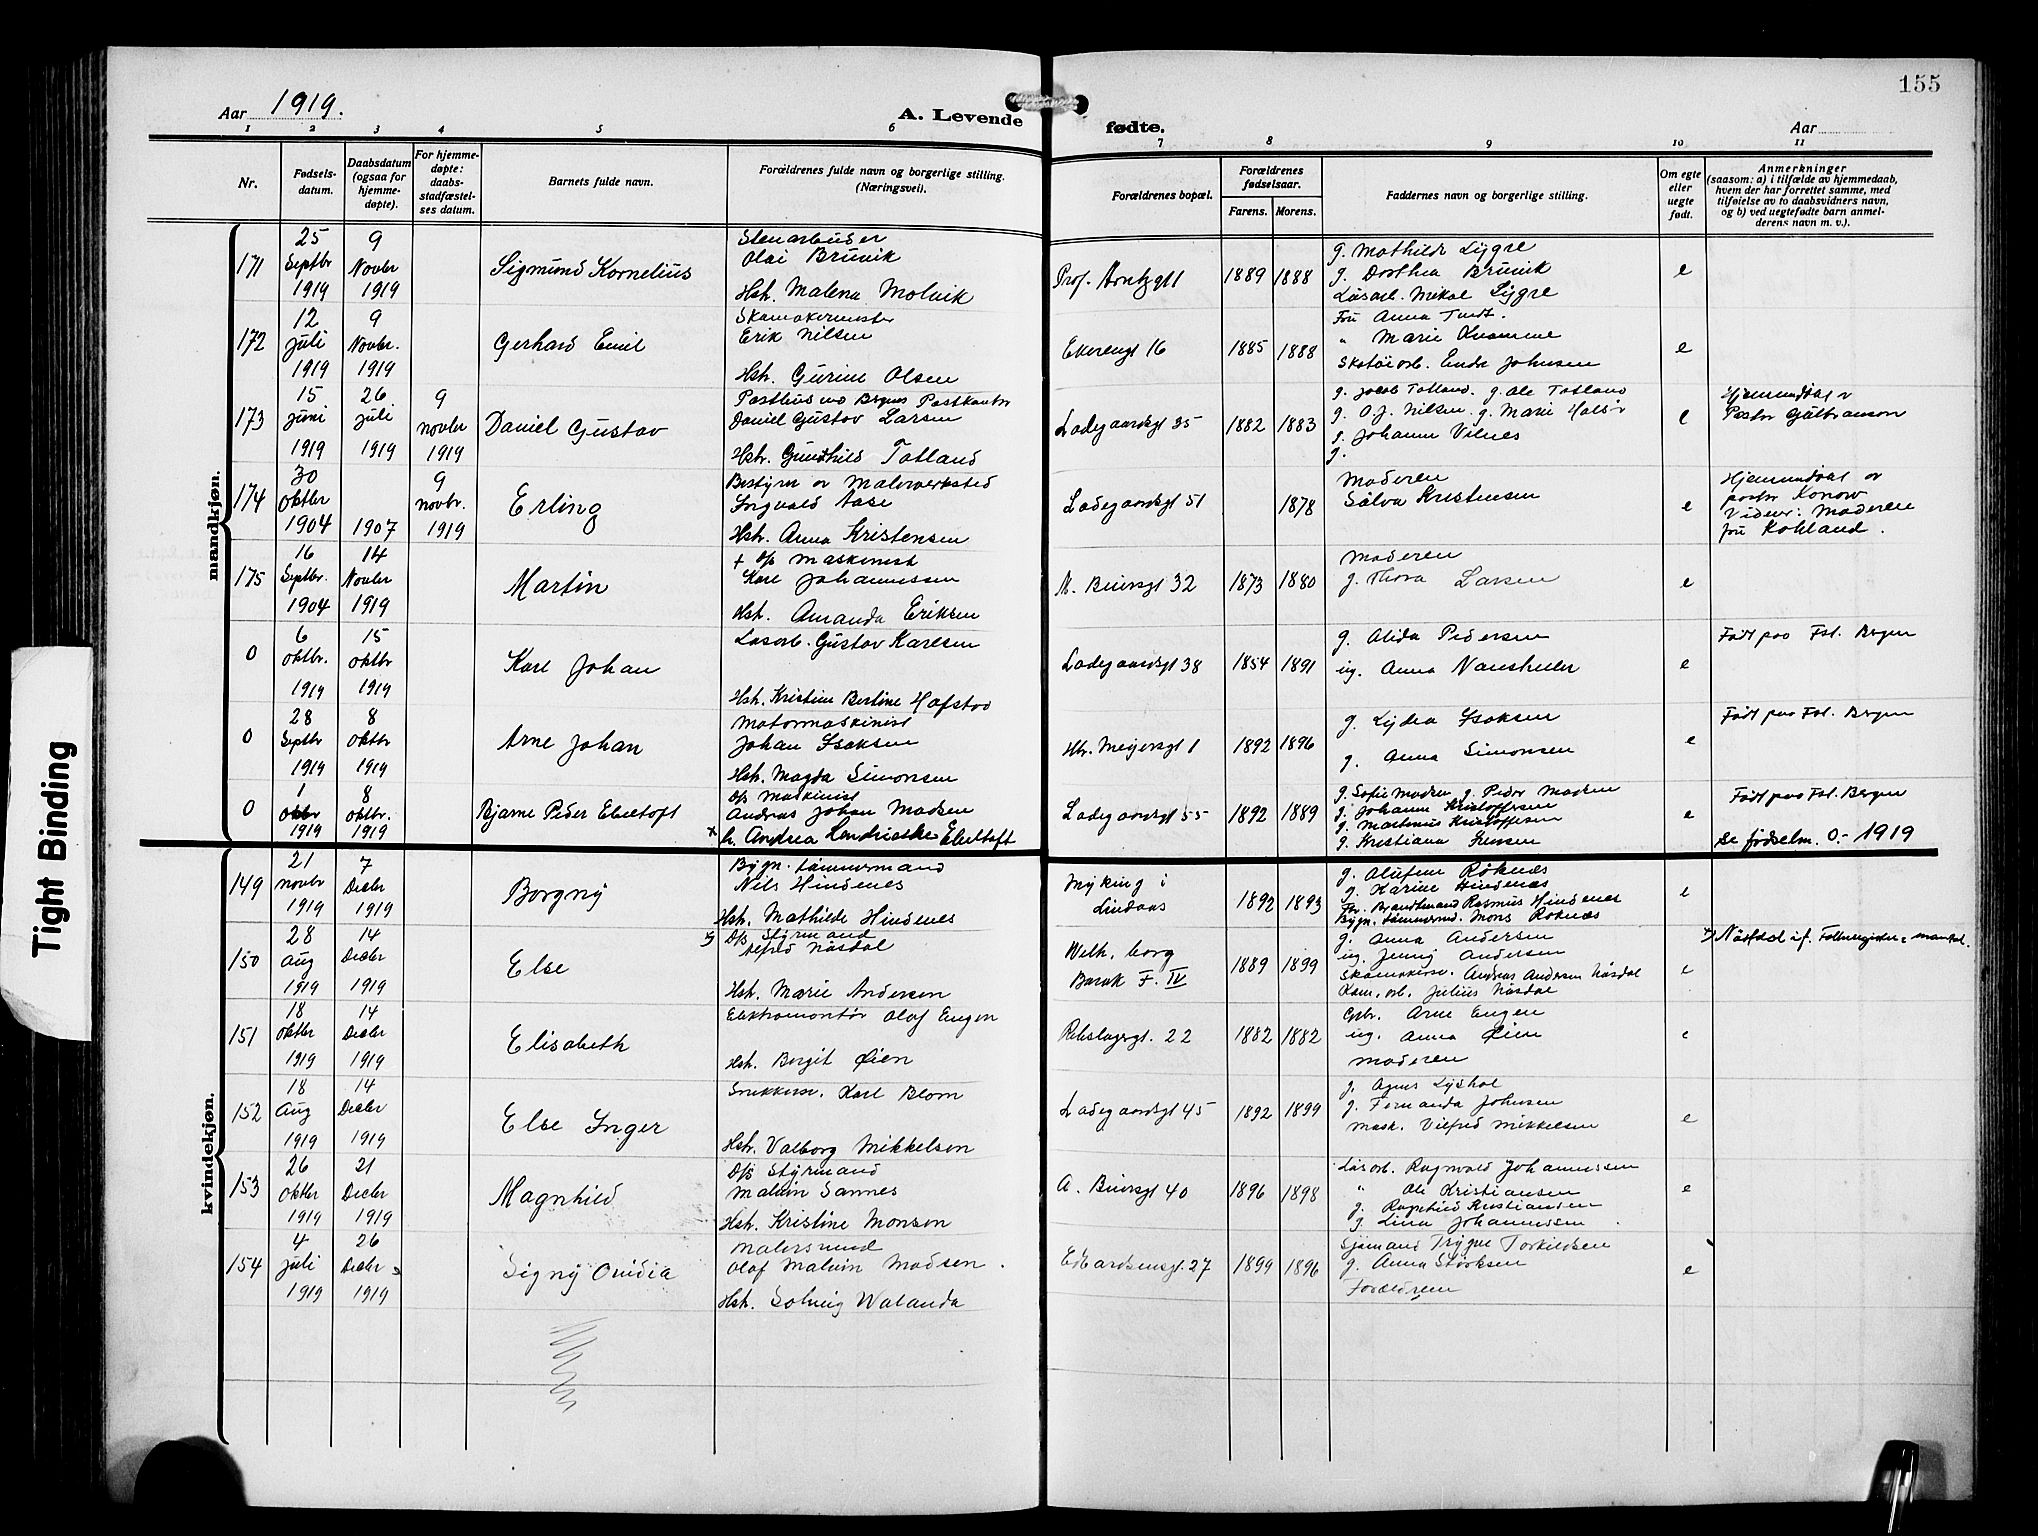 155
Aar 1919.
A. Levende fødte.
Aar
1 2 3 4 5 6 7 8 9 10 11
Nr.
Fødsels-
datum.
Daabsdatum
(ogsaa for
hjemme-
døpte).
For hjemme-
døpte:
daabs-
stadfæstel-
ses datum.
Barnets fulde navn.
Forældrenes fulde navn og borgerlige stilling.
(Næringsvei).
Forældrenes bopæl.
Forældrenes
fødselsaar.
Farens. Morens.
Faddernes navn og borgerlige stilling.
Om egte
eller
uegte
født.
Anmerkninger
(saasom: a) i tilfælde av hjemmedaab,
hvem der har forrettet samme, med
tilføielse av to daabsvidners navn,
og b) ved uegtefødte barn anmel-
derens navn m. v.).
mandkjøn.
171
25
Septbr
1919
9
Novbr
1919
Sigmund Kornelius
Stenarbeider
Olai Bruvik
Hst. Malena Molvik
Prof. Arntzgt 1
1889 1888
g. Mathilde Lygre
g. Dorthea Bruvik
Løsarb. Mikal Lygre
e
172
12
Juli
1919
9
Novbr.
1919
Gerhard Emil
Skomakermester
Erik Nilsen
Hst. Gurine Olsen
Ekerengt 16
1885 1888
Fru Anna
" Marie Kvamme
Skotøiarb. Endre Johnsen
e
173
15
Juni
1919
26
Juli
1919
9
novbr
1919
Daniel Gustav
Postbud ved Bergens Postkontor
Daniel Gustav Larsen
Hst. Gundhild Totland
Ladegaardsgt 35
1882 1883
g. Jacob Totland. g. Ole Totland
g. O. J. Nilsen. g. Marie
g. Johanne Vilnes
g.
e
Hjemmedøbt v
Pastor Gulbranson
174
30
Oktbr
1904
1907
9
novbr.
1919
Erling
Bestyrer av Malerverksted
Ingvald Aase
Hst. Anna Kristensen
Ladegaardsgt 51
1878
Moderen
Sålva Kristensen
e
Hjemmedøbt av
pastor Konow
Vidner: Moderen
fru Kohland.
175
16
Septbr.
1904
14
Novbr
1919
Martin
+ D/s Maskinist
Karl Johannessen
Hst. Amanda Eriksen
M. Beiersgt 32
1873 1880
Moderen
g. Thora Larsen
e
0
6
Oktbr.
1919
15
Oktbr
1919
Karl Johan
Løsarb. Gustav Karlsen
Hst. Kristine Bertine Hafstad
Ladegaardsgt 38
1854 1891
g. Alida Pedersen
ug. Anna
e
Født paa Fst. Bergen
0
28
Septbr
1919
8
Oktbr
1919
Arne Johan
Motormaskinist
Johan Isaksen
Hst. Magda Simonsen
Hr. Meyersgt 1
1892 1896
g. Lydia Isaksen
g. Anna Simonsen
e
Født paa Fst. Bergen
0
1
Oktbr
1919
8
Oktbr.
1919
Bjarne Peder Ebeltoft
D/s Maskinist
Andreas Johan Madsen
x h. Andrea Hendrikke Ebeltoft
Ladegaardsgt 55
1892 1889
g. Sofie Madsen g. Peder Madsen
g. Johanne Kristoffersen
g. Martinus Kristoffersen
g. Kristiana Jensen
e
Født paa Fst. Bergen
se fødselm. 0. - 1919
kvindekjøn.
149
21
Novbr
1919
7
Decbr
1919
Borgny
Bygn. tømmermand
Nils Hindenes
Hst. Mathilde Hindenes
Myking i
Lindaas
1892 1893
g. Olufine Røknes
g. Karine Hindenes
Fhv. Brandmand Rasmus Hindenes
Bygn. tømmermd. Mons Røknes
e
150
28
Aug
1919
14
Decbr
1919
Else
D/s Styrmand
Alfred Nåsdal
Hst. Marie Andersen
Welh. borg
Barak F. IV
1889 1899
g. Anna Andersen
ug. Jenny Andersen
Skomakerm. Andreas Andersen Nåsdal
Kom. arb. Julius Nåsdal
e
151
18
Oktbr
1919
14
Decbr
1919
Elisabeth
Elektromontør Olaf Engen
Hst. Bergit Øien
Rebslagergt. 22
1882 1882
Gbr. Arne Engen
ug. Anna Øien
Moderen
e
152
18
Aug
1919
14
Decbr
1919
Else Inger
Snekkerm. Karl Blom
Hst. Valborg Mikkelsen
Ladegaardsgt 45
1892 1899
g. Agnes Lyshol
g. Fernanda Johnsen
Mask. Vilfred Mikkelsen
e
153
26
Oktbr
1919
21
Decbr
1919
Magnhild
D/s Styrmand
Malvin Sannes
Hst. Kristine Monsen
A. Beiersgt 40
1896 1898
Løsarb. Ragnvald Johannessen
" Ole Kristiansen
g. Ragnhild Kristiansen
g. Lina Johannessen
e
154
4
Juli
1919
26
Decbr
1919
Signy Ovidia
Malersvend
Olaf Malvin Madsen.
Hst. Solveig Walanda
Edvardsensgt. 27
1899 1896
Sjømand Trygve Torkildsen
g. Anna Størksen
Forældrene
e
Tight Binding